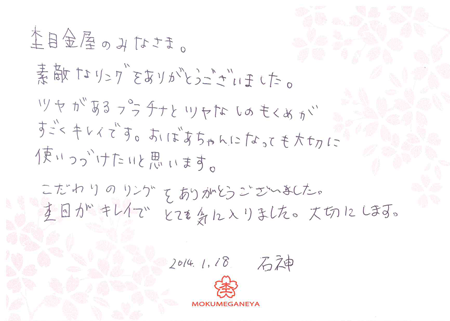 杢目金屋のみなさま。
素敵なリングをありがとうございました。
ツヤがあるプラチナとツヤなしのもくめが
すごくキレイです。おばあちゃんになっても大切に
使いつづけたいと思います。
こだわりのリングをありがとうございました。
杢目がキレイでとても気に入りました。大切にします。
2014.1.18 石神
MOKUMEGANEYA